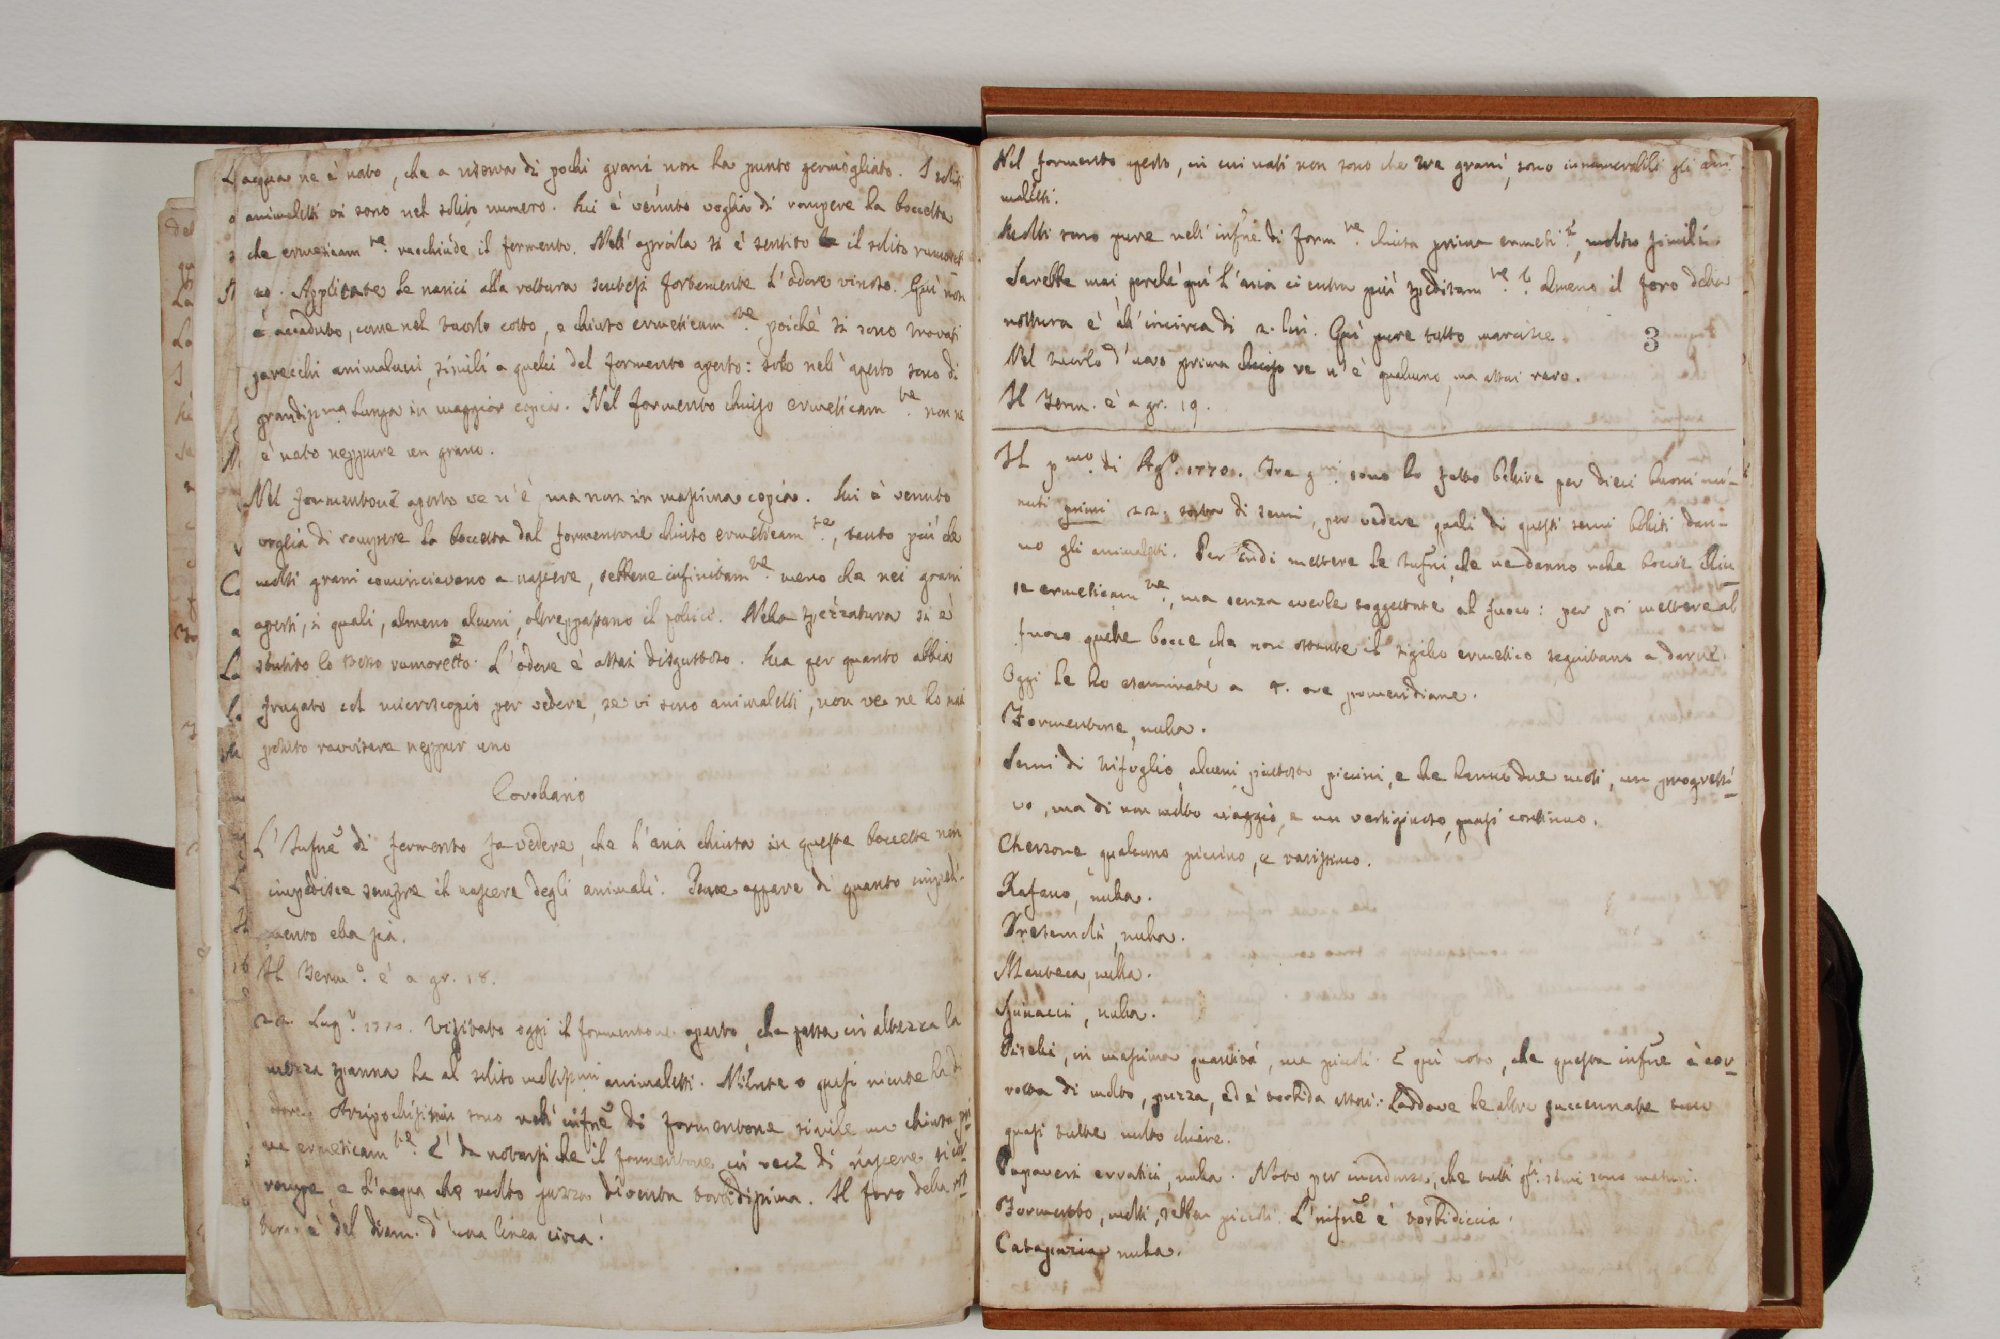 acqua ne è nato, che a riserva di pochi grani non ha punto germogliato. I soliti
animaletti vi sono nel solito numero. Mi è venuto voglia di rompere la boccetta
che ermeticam.te racchiude il formento. Nell' aprirla si è sentito il solito rumoret
to. Applicate le narici alla rottura sentesi fortemente l'odore vinoso. Quì non
è accaduto, come nel tuorlo cotto, e chiuso ermeticam.te poichè si sono trovati
parecchi animalucci, simili a quelli del formento aperto: solo nell' aperto sono di
grandis.ma lunga in maggior copia. Nel formento chiuso ermeticam.te non ne
è nato neppure un grano.
Nel formentone aperto ve n'è, ma non in massima copia. Mi è venuto
voglia di rompere la boccetta dal formentone chiuso ermeticam.te, tanto più che
molti grani cominciavano a nascere, sebbene infinitam.te meno che nei grani
aperti, i quali, almeno alcuni, oltrepassano il pollice. Nella spezzatura si è
sentito lo stesso rumoretto. L'odore è assai disgustoso. Ma per quanto abbia
frugato col microscopio per vedere, se vi sono animaletti, non ve ne ho mai
potuto ravvisare neppur uno
Corollario
L'Infus.e di formento fa vedere, che l'aria chiusa in queste boccette non
impedisce sempre il nascere degli animali. appare di quanto impedi-
mento ella sia.
Il Term.o è a gr. 18.
22. Lug.o 1770. Visitato oggi il formentone aperto, che in altezza la
mezza spanna ha al solito moltissimi animaletti. Niente o quasi niente ha di
odore. Arcipochissimi sono nell' infus.e di formentone simile ma chiusa pri
ma ermeticam.te. E' da notarsi che il formentone in vece di nascere si cor
rompe, e l'acqua che molto puzza diventa torbidissima. Il foro della rot
tura è del diam. d'una linea circa.
Nel formento aperto, in cui nati non sono che tre grani, sono innumerabili gli ani
maletti.
Molti sono pure nell' infus.e di form.to chiusa prima ermeti.te, molto simili.
Sarebbe mai perchè quì l'aria ci entra più speditam.te? almeno il foro della
rottura è all'incirca di 2. lin. Quì pure tutto marcisce.
3
Nel tuorlo d'uovo prima chiuso ve n'è qualcuno, ma assai raro.
Il Term. è a gr. 19.
Il p.mo di Ag.o 1770. Tre g.ni sono ho fatto bollire per dieci buoni mi-
nuti primi 22. sorta di semi, per vedere quali di questi semi bolliti dan-
no gli animaletti. Per indi mettere le Infus.ni, che ne danno nelle bocce chiu
se ermeticam.te, ma senza averle soggettate al fuoco: per poi mettere al
fuoco quelle bocce, che non ostante il sigillo ermetico seguitano a darne.
Oggi le ho esaminate a 4. ore pomeridiane.
Formentone, nulla.
Semi di trifoglio, alcuni piuttosto piccini, e che hanno due moti, un progressi
vo, ma di non molto viaggio, e un vertiginoso, quasi continuo.
qualcuno piccino, e rarissimo.
Rafano, nulla.
Pretemoli, nulla.
nulla.
Spinacci, nulla.
Piselli, in massima quantità, ma piccoli. E quì noto, che questa infus.e è cor
rotta di molto, puzza, ed è torbida assai: laddove le altre succennate sono
quasi tutte molto chiare.
Papaveri erratici, nulla. Noto per incidenza, che tutti q.ti semi sono maturi.
Formento, molti, sebben piccoli. L'infus.e è torbidiccia.
Catapuzia nulla.